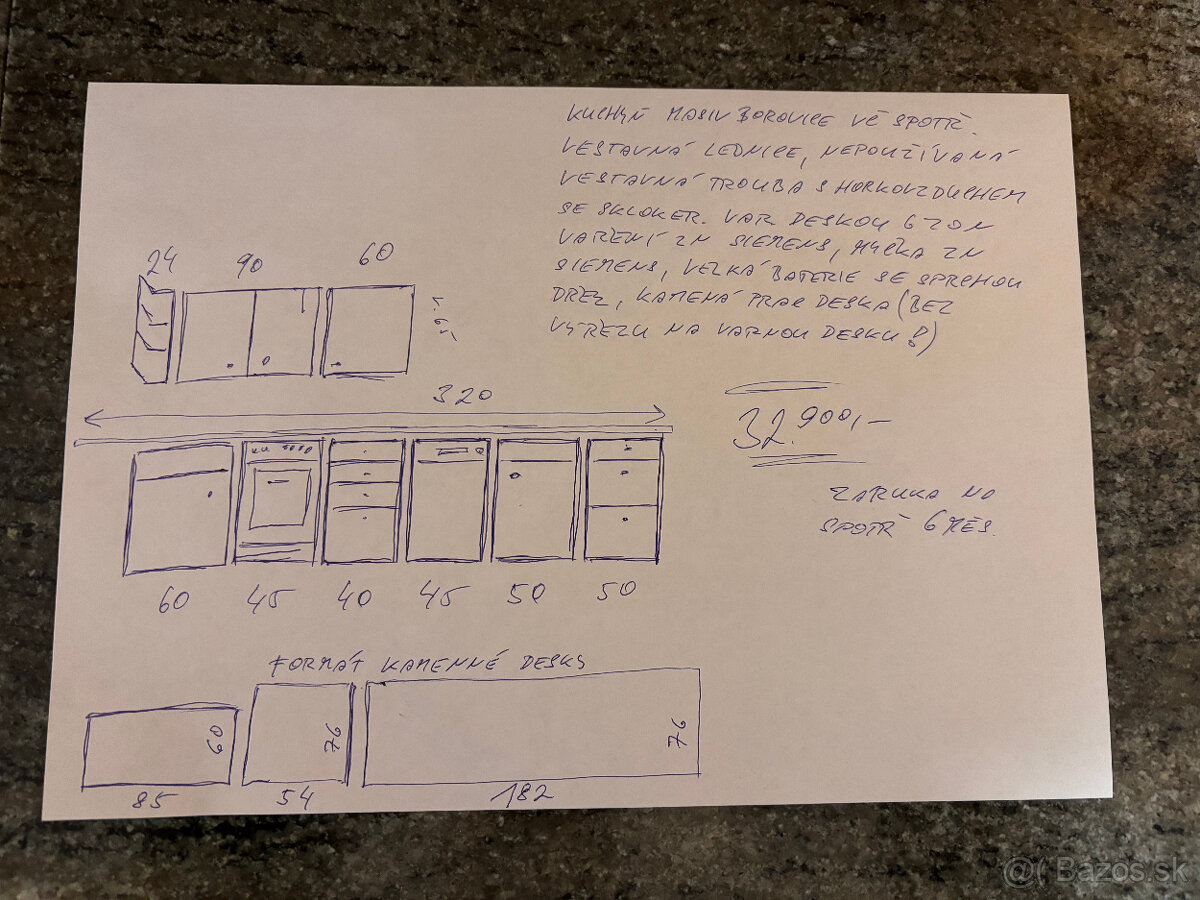 KUCHYŇ MASIV BOROVICE VČ SPOTŘ.
VESTAVNÁ LEDNICE, NEPOUŽÍVANÁ
VESTAVNÁ TROUBA S HORKOVZDUCHEM
SE SKLOKER. VAR DESKOU 6 ZON
VAŘENÍ ZN SIEMENS, MYČKA ZN
SIEMENS, VELKÁ BATERIE SE SPRCHOU
DŘEZ, KAMENÁ PRAC DESKA (BEZ
VÝŘEZU NA VARNOU DESKU!)
24 90 60
320
32.900,-
ZÁRUKA NA
SPOTŘ 6 MĚS.
60 45 40 45 50 50
FORMÁT KAMENNÉ DESKY
60 76 76
85 54 182
@( Bazos.sk